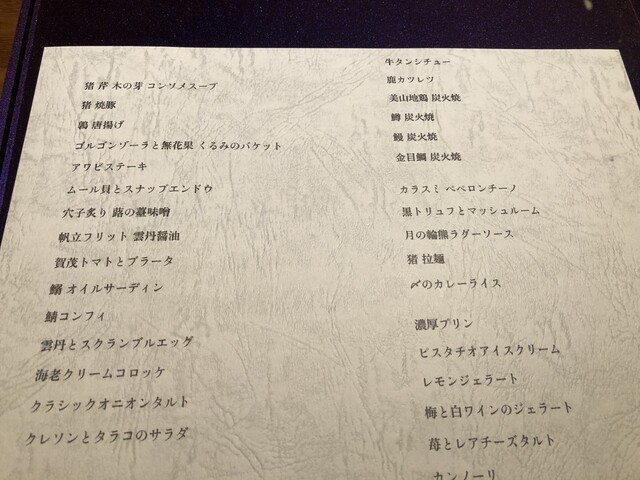 猪 芹 木の芽 コンソメスープ
猪 焼豚
鶉 唐揚げ
ゴルゴンゾーラと無花果 くるみのバケット
アワビステーキ
ムール貝とスナップエンドウ
穴子炙り 蕗の薹味噌
帆立フリット 雲丹醤油
賀茂トマトとブラータ
鰯 オイルサーディン
鯖コンフィ
雲丹とスクランブルエッグ
海老クリームコロッケ
クラシックオニオンタルト
クレソンとタラコのサラダ
牛タンシチュー
鹿カツレツ
美山地鶏 炭火焼
鱒 炭火焼
鰻 炭火焼
金目鯛 炭火焼
カラスミ ペペロンチーノ
黒トリュフとマッシュルーム
月の輪熊ラグーソース
猪 拉麺
〆のカレーライス
濃厚プリン
ピスタチオアイスクリーム
レモンジェラート
梅と白ワインのジェラート
苺とレアチーズタルト
カンノーリ